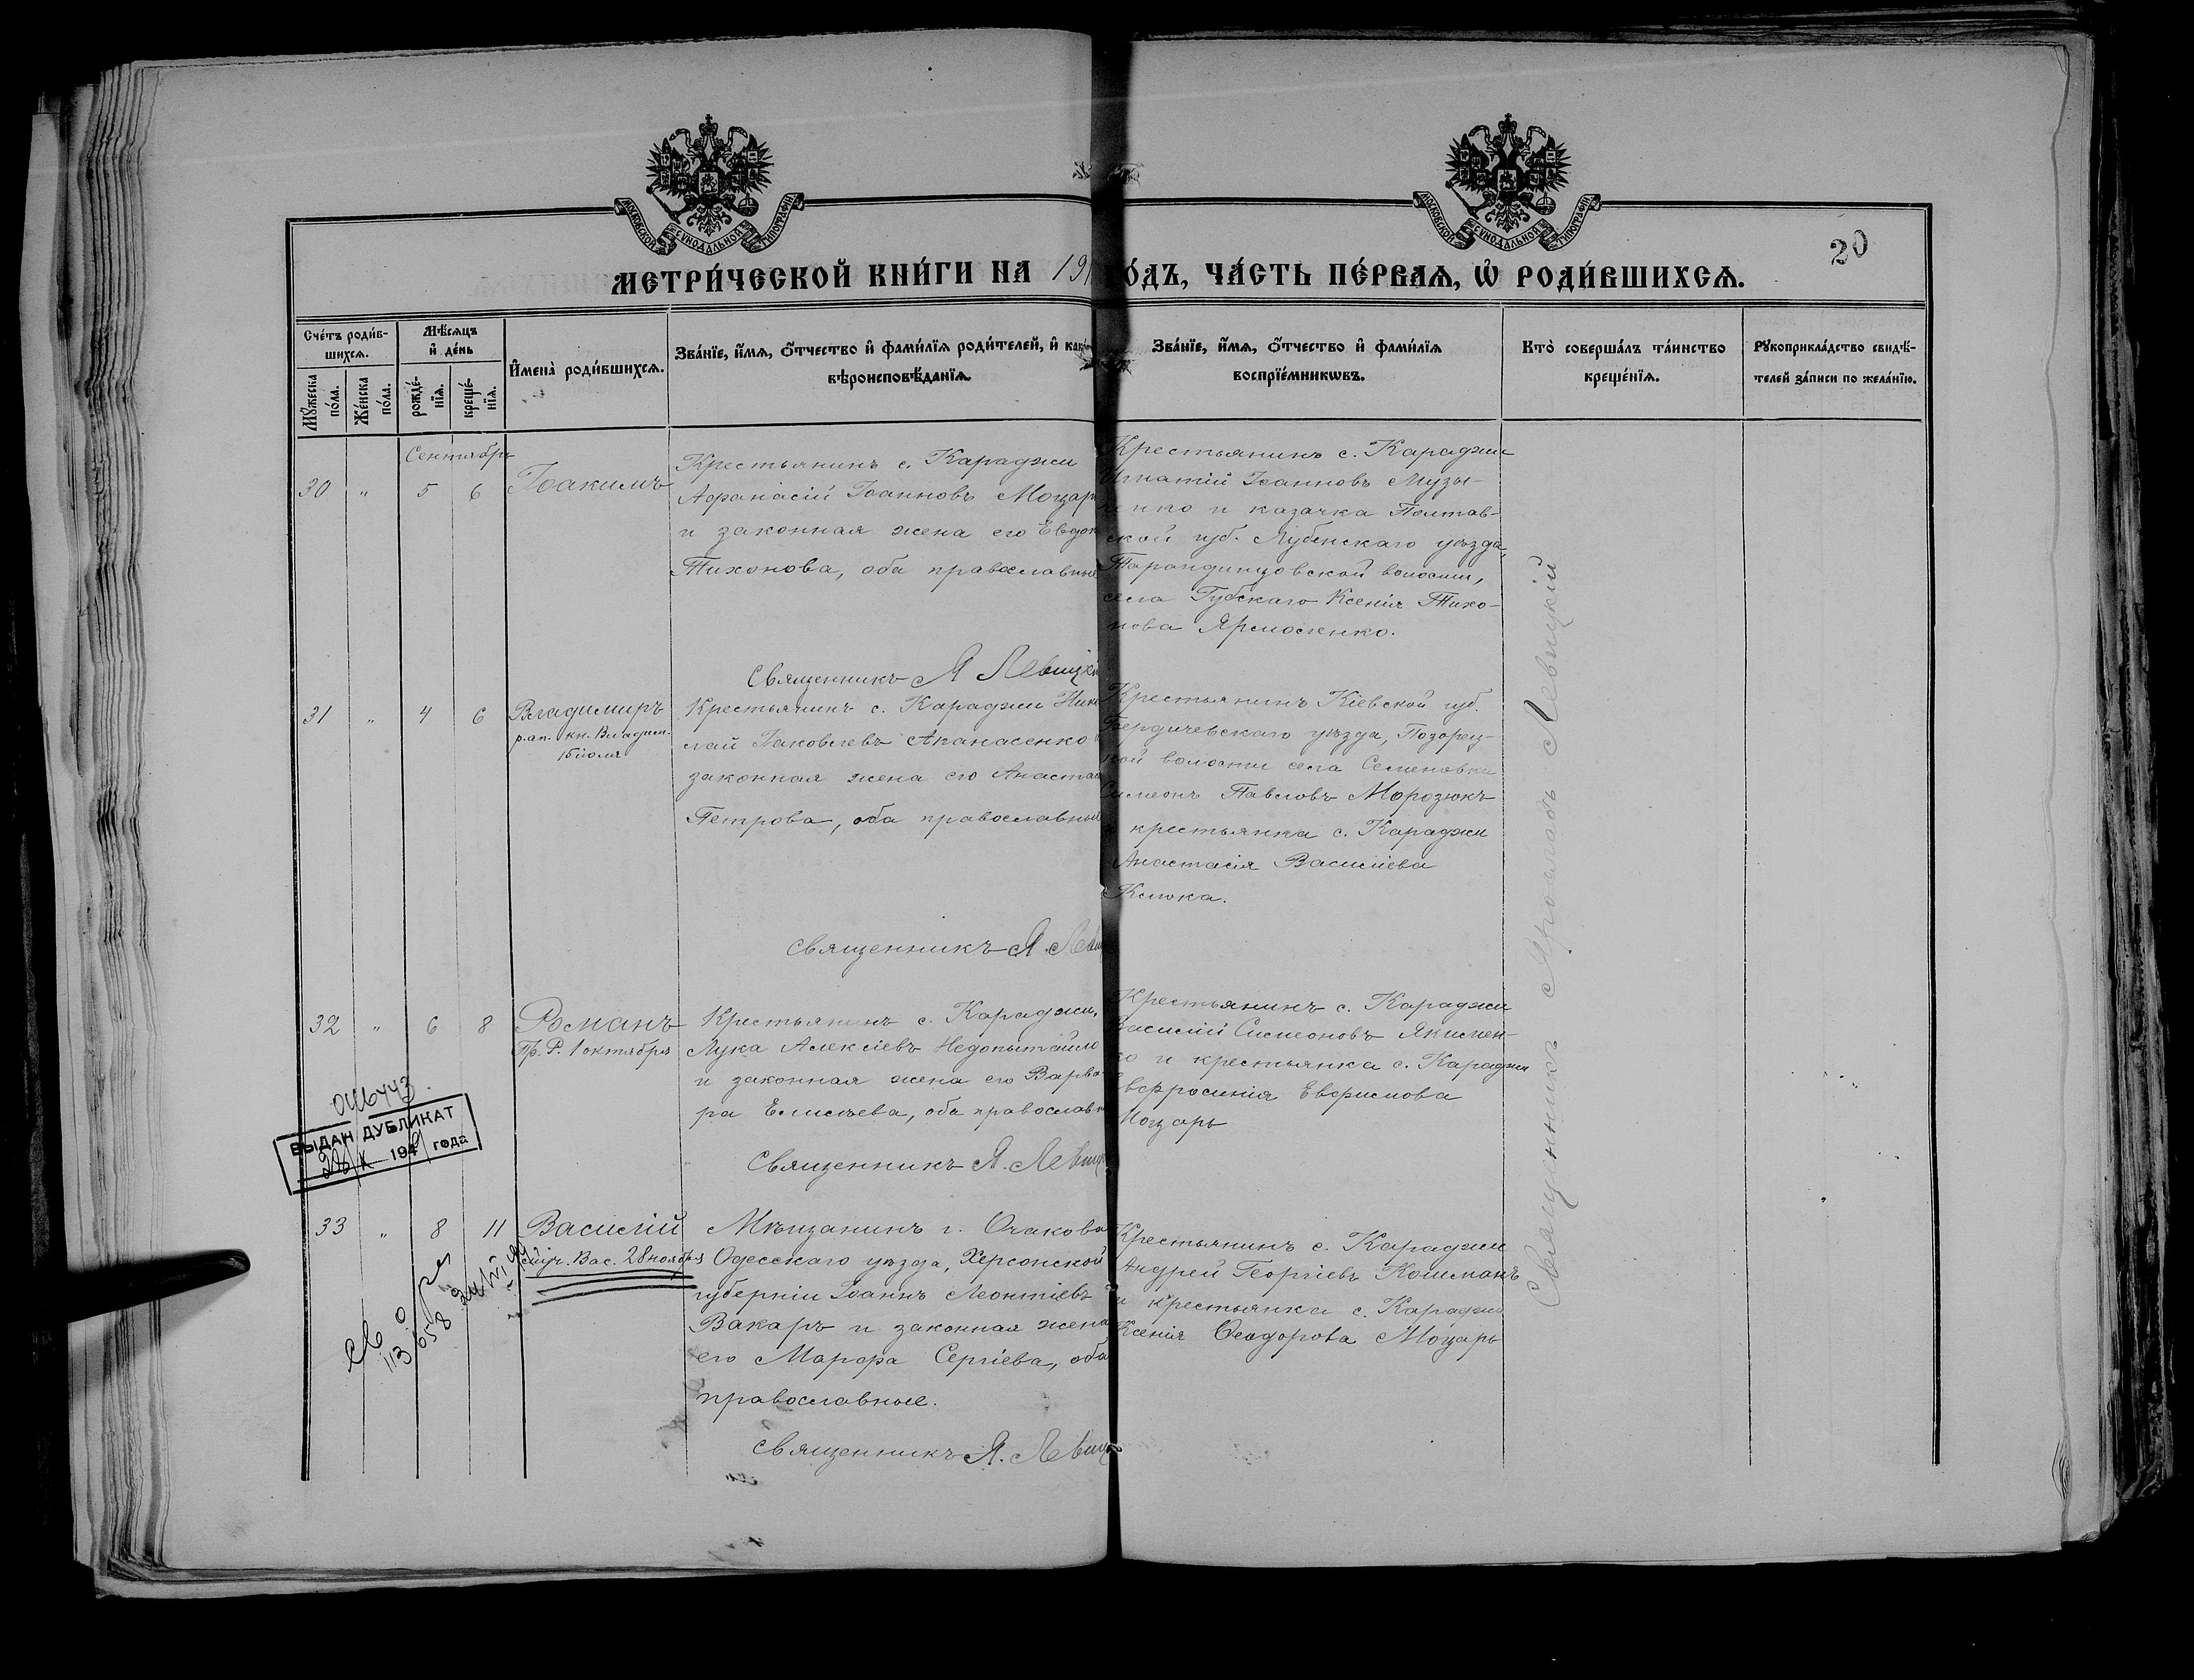 МОСКОВСКОЙ СѴНОДАЛЬНОЙ ТИПОГРАФІИ
МОСКОВСКОЙ СѴНОДАЛЬНОЙ ТИПОГРАФІИ
20
МЕТРИ́ЧЕСКОЙ КНИ́ГИ НА 191 ГО́ДЪ, ЧА́СТЬ ПЕ́РВАѦ, Ѡ҆ РОДИ́ВШИХСѦ.
Сче́тъ роди́в-
шихсѧ.
Мꙋ́жеска по́ла.
Же́нска по́ла.
Мѣ́сѧцъ
и҆ де́нь
рожде́-
нїѧ.
креще́-
нїѧ.
И҆мена̀ роди́вшихсѧ.
Зва́нїе, и҆́мѧ, ѻ҆́тчество и҆ фами́лїѧ роди́телей, и҆ како́
вѣроисповѣ́данїѧ.
Зва́нїе, и҆́мѧ, ѻ҆́тчество и҆ фами́лїѧ
воспрїе́мникѡвъ.
Кто̀ соверша́лъ та́инство
креще́нїѧ.
Рꙋкоприкла́дство свидѣ́-
телей за́писи по жела́нїю.
Сентябрь
30 " 5 6 Іоакимъ
Крестьянинъ с. Караджи
Афанасій Іоанновъ Моцар
и законная жена его Евдок
Тихонова, оба православные
Священникъ Я Левицкі
Крестьянинъ с. Караджи
Игнатій Іоанновъ Музы-
ченко и казачка Полтав-
ской губ. Лубенскаго уѣзда,
Тарандинцовской волости,
села Губскаго Ксенія Тихо-
нова Ярмошенко.
31 " 4 6 Владимиръ
р. ап. кн. Владим.
15 іюля
Крестьянинъ с. Караджи Нико
лай Іаковлевъ Апанасенко
законная жена его Анастас
Петрова, оба православные
Священникъ Я. Леви
Крестьянинъ Кіевской губ.
Бердичевскаго уѣзда,
ной волости села Семеновки
Симеонъ Павловъ Морозюкъ
и крестьянка с. Караджи
Анастасія Василіева
Клюка.
32 " 6 8 Романъ
Пр. Р. 1 октября
Крестьянинъ с. Караджи,
Лука Алексіевъ Недопытайло
и законная жена его Варва-
ра Елисѣева, оба православн
Священникъ Я. Левиц
Крестьянинъ с. Караджи
Василій Симеоновъ Якимен-
ко и крестьянка с. Караджи
Евфросинія Евфимова
Моцарь
ВЫДАН ДУБЛИКАТ
194 года
33 " 8 11 Василій
Вас. 28 ноября
Мѣщанинъ г. Очакова
Одесскаго уѣзда, Херсонской
губерніи Іоаннъ Леонтіевъ
Вакаръ и законная жена
его Марфа Сергіева, оба
православные.
Священникъ Я. Левиц
Крестьянинъ с. Караджи
Андрей Георгіевъ Кошманъ
и крестьянка с. Караджи
Ксенія Ѳеодорова Моцарь
113658
Священникъ Ярославъ Левицкій